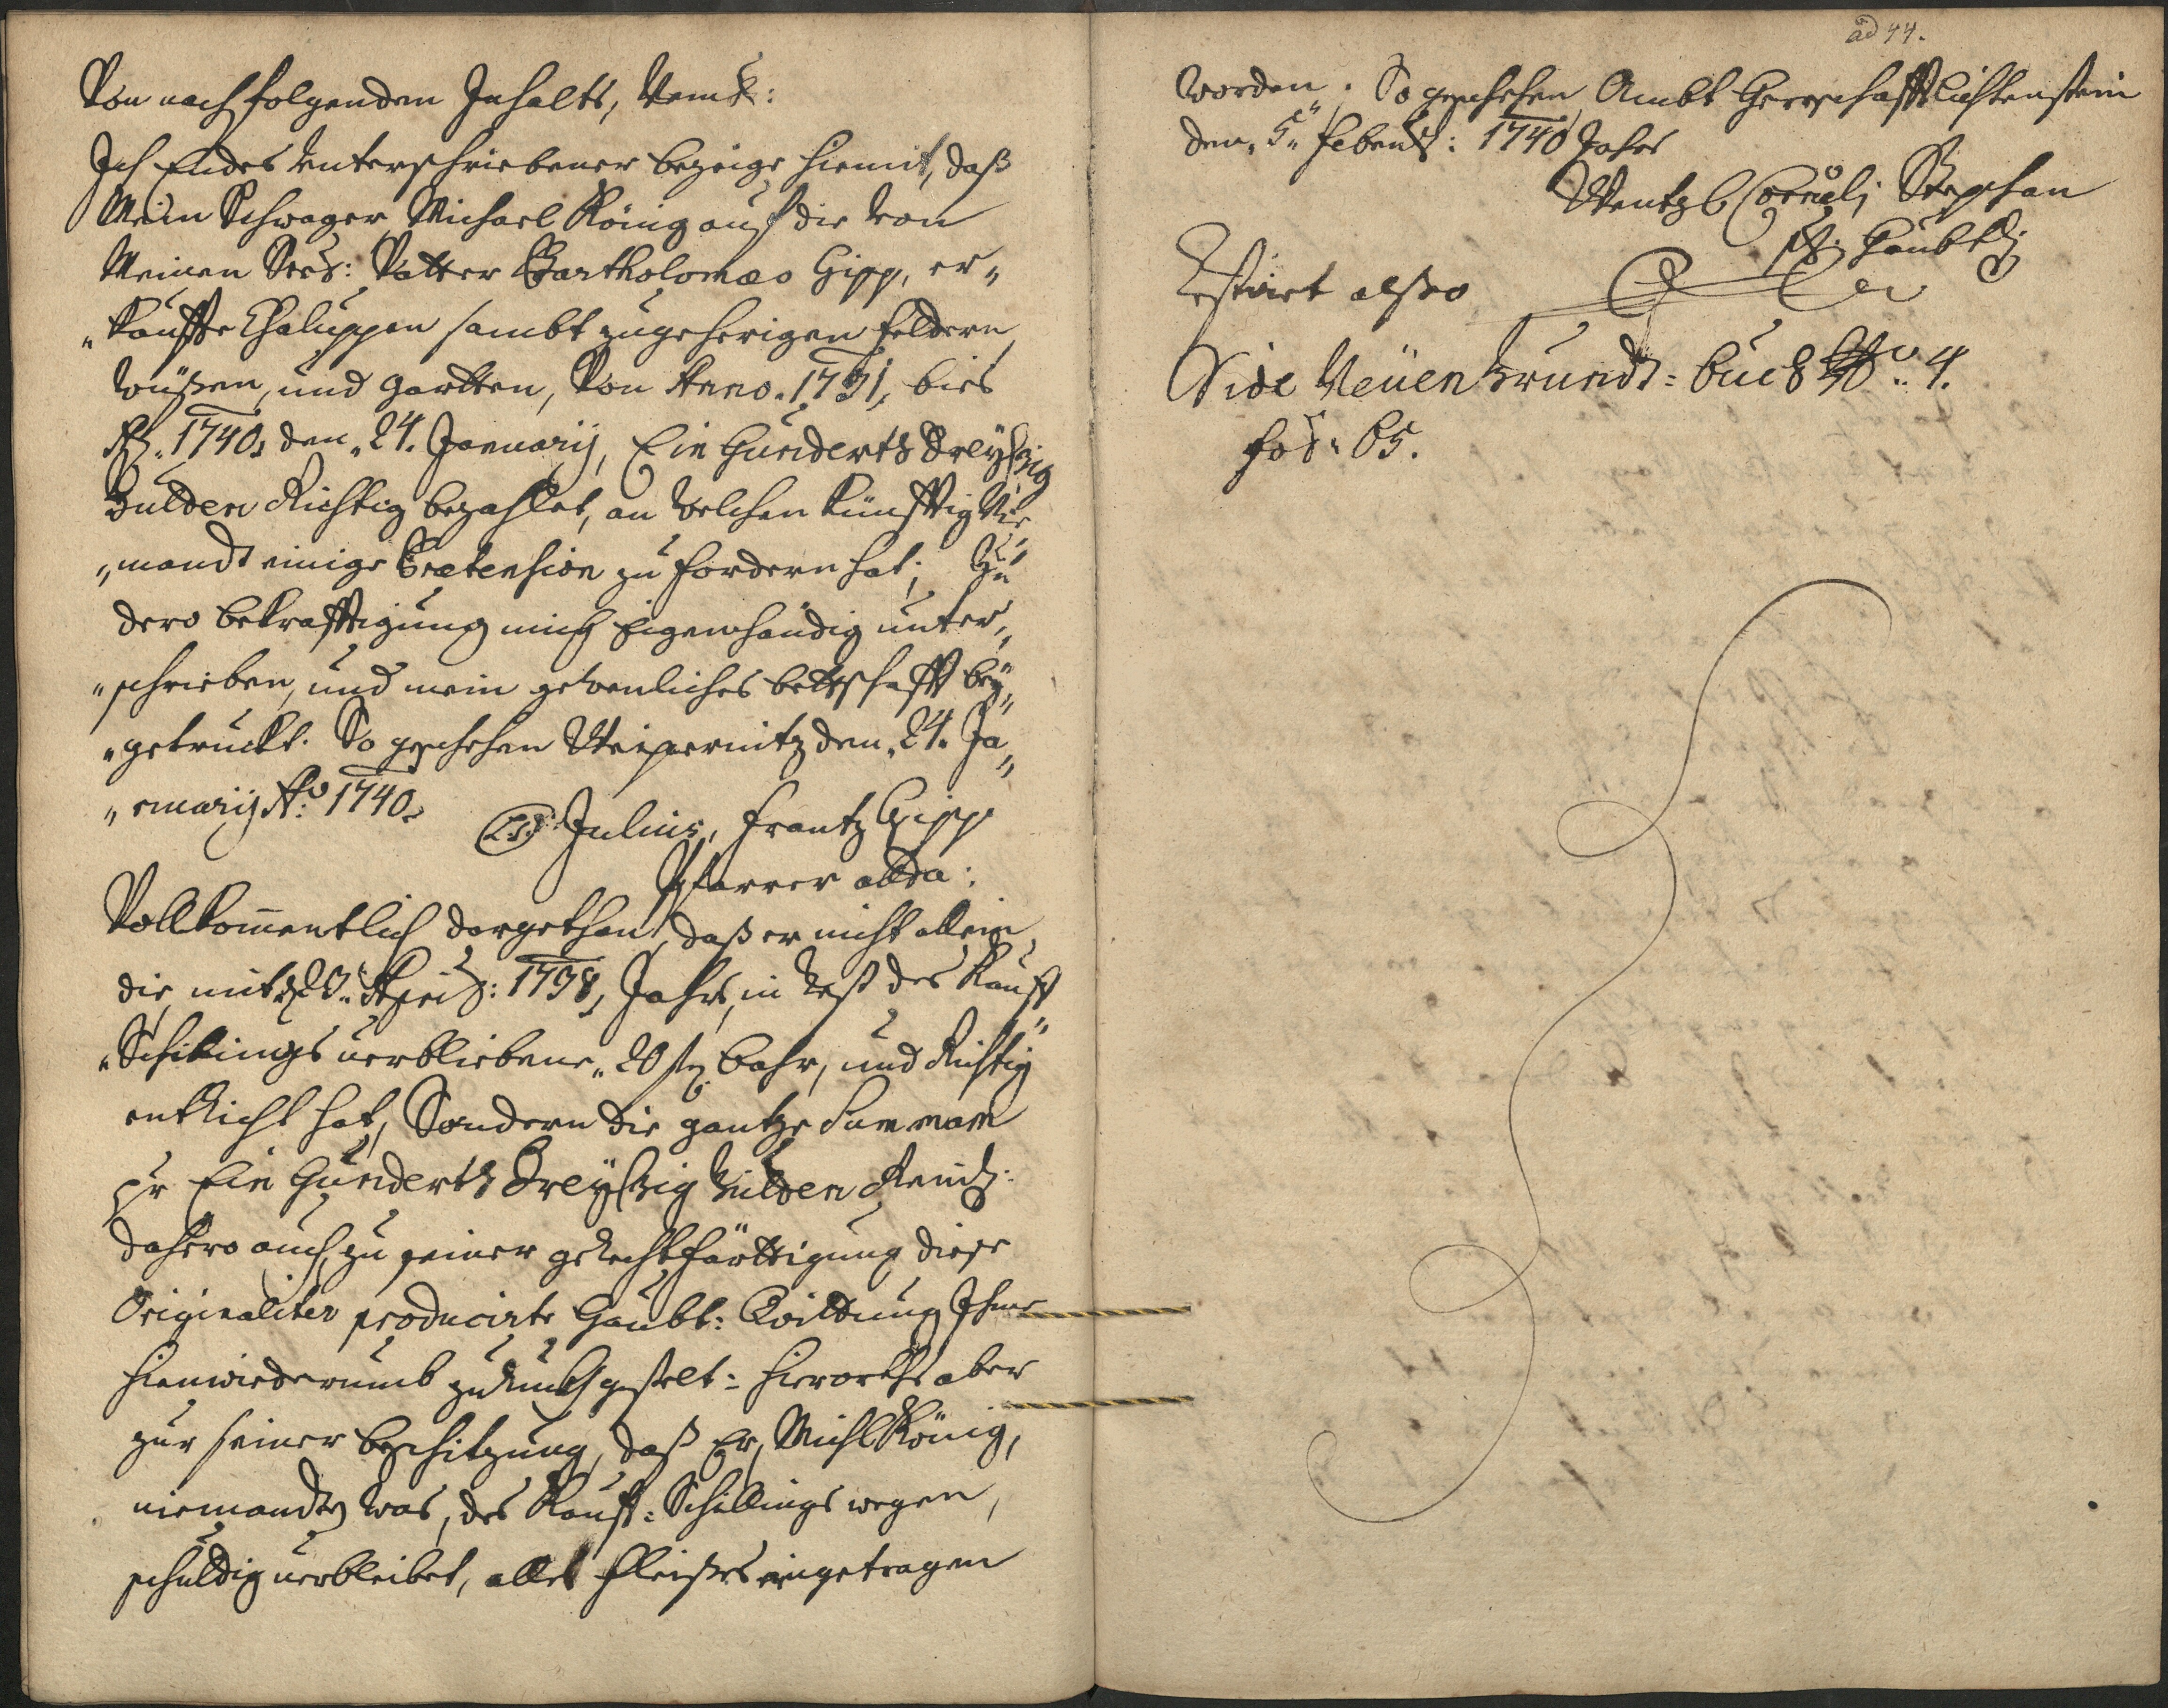 Von nachfolgenden Inhalts, Nembl:
Ich Endes Unterschriebener bezeige hiemit, daß
Mein Schwager Michael König auf die von
Meinen Seel: Vatter Bartholomæo Gipp, er„
„kauffte Chaluppen sambt zugeherigen feldern,
wüßen, und gartten, Von Anno. 1731, bies
Ao. 1740, den „24. Januarij, Ein Hunderth Dreyßig
Gulden Richtig bezahlet, an welchen künfftig Nie„
„mandt einige Prætension zu fordern hat; Zu
dero bekräfftigung mich Eigenhändig unter„
„schrieben, und mein gewenliches bettschafft bey„
„getruckt. So geschehen Weipernitz den „24. Ja„
„nuarij Ao: 1740.
L.S. Julius, Frantz Gipp
Pfarrer allda:
Vollkom̄entlich dargethan, daß er nicht allein
die mit 20: April: 1738, Jahrs, in Rest des Kauff„
„Schillings verbliebene „20 fl bahr, und Richtig
entRicht hat, Sondern die gantze Summam
pr Ein Hunderth Dreyßig Gulden Reinl:
dahero auch zu seiner gerechtfärttigung diese
Originaliter producirte Haubt: Quittung Ihme
hienwiederumb zuruckgestelt: hierorths aber
zur seiner beschitzung, daß Er, Michl König,
niemandten was, des Kauff: Schillings wegen,
schuldig verbleibet, alles fleißes eingetragen
ad 44.
worden. So geschehen Ambt Herrschafft Lichtenstein
den „5„ Febru: 1740 Jahrs
Wentzl Corneli Stephan
Haubtm
Restiret alßo
Vide Neüen Grundt: buch No: 4.
fol: 65.